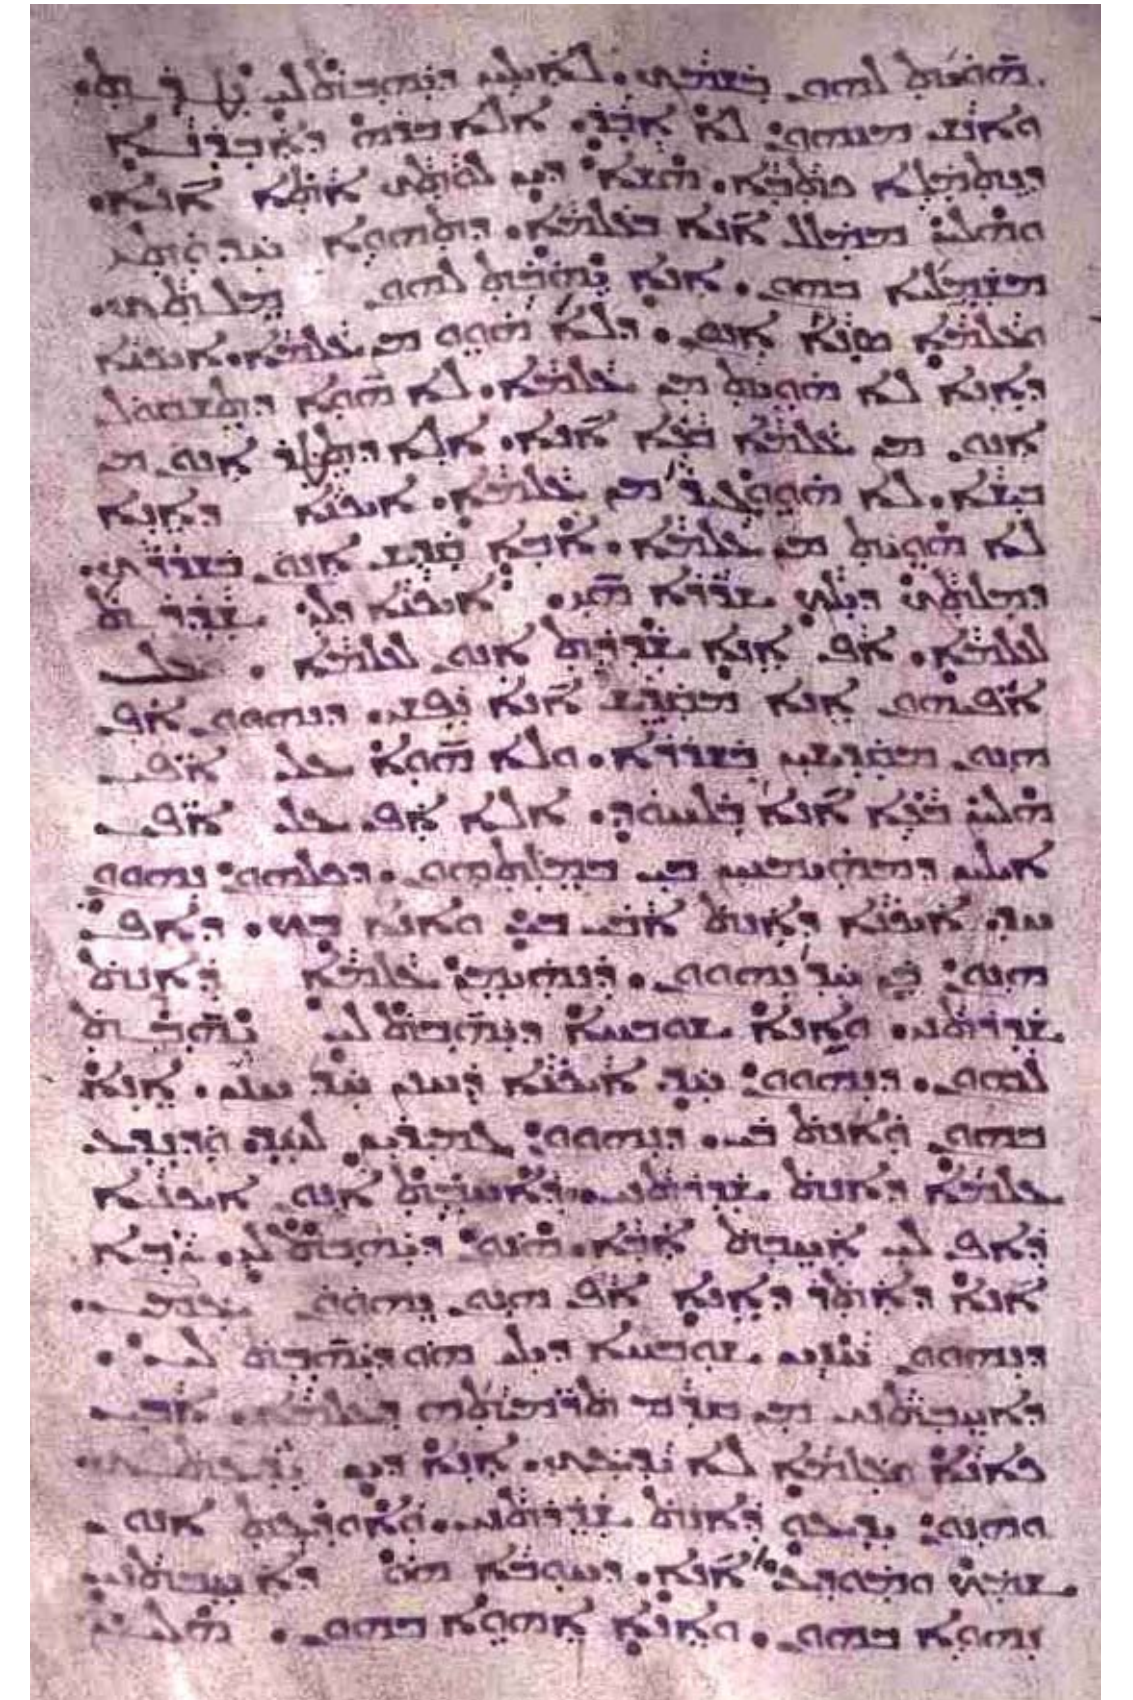 ܗܘܝܬ ܠܗܘܢ ܒܫܡܟ. ܠܐܝܠܝܢ ܕܝܗܒܬ ܠܝ ܢܛܪܬ.
ܘܐܢܫ ܡܢܗܘܢ ܠܐ ܐܒܕ. ܐܠܐ ܒܪܗ ܕܐܒܕܢܐ
ܕܢܬܡܠܐ ܟܬܒܐ. ܗܫܐ ܕܝܢ ܠܘܬܟ ܐܬܐ ܐܢܐ.
ܘܗܠܝܢ ܡܡܠܠ ܐܢܐ ܒܥܠܡܐ. ܕܬܗܘܐ ܚܕܘܬܝ
ܡܫܡܠܝܐ ܒܗܘܢ. ܐܢܐ ܝܗܒܬ ܠܗܘܢ ܡܠܬܟ.
ܘܥܠܡܐ ܣܢܐ ܐܢܘܢ. ܕܠܐ ܗܘܘ ܡܢ ܥܠܡܐ. ܐܝܟܢܐ
ܕܐܢܐ ܠܐ ܗܘܝܬ ܡܢ ܥܠܡܐ. ܠܐ ܗܘܐ ܕܬܫܩܘܠ
ܐܢܘܢ ܡܢ ܥܠܡܐ ܒܥܐ ܐܢܐ. ܐܠܐ ܕܬܛܪ ܐܢܘܢ ܡܢ
ܒܝܫܐ. ܠܐ ܗܘܘ ܓܝܪ ܡܢ ܥܠܡܐ. ܐܝܟܢܐ ܕܐܢܐ
ܠܐ ܗܘܝܬ ܡܢ ܥܠܡܐ. ܐܒܐ ܩܕܫ ܐܢܘܢ ܒܫܪܪܟ.
ܕܡܠܬܟ ܕܝܠܟ ܫܪܪܐ ܗܝ. ܐܝܟܢܐ ܕܠܝ ܫܕܪܬ
ܠܥܠܡܐ. ܐܦ ܐܢܐ ܫܕܪܬ ܐܢܘܢ ܠܥܠܡܐ. ܘܥܠ
ܐܦܝܗܘܢ ܐܢܐ ܡܩܕܫ ܐܢܐ ܢܦܫܝ. ܕܢܗܘܘܢ ܐܦ
ܗܢܘܢ ܡܩܕܫܝܢ ܒܫܪܪܐ. ܘܠܐ ܗܘܐ ܥܠ ܐܦܝ
ܗܠܝܢ ܒܥܐ ܐܢܐ ܒܠܚܘܕ. ܐܠܐ ܐܦ ܥܠ ܐܦܝ
ܐܝܠܝܢ ܕܡܗܝܡܢܝܢ ܒܝ ܒܡܠܬܗܘܢ. ܕܟܠܗܘܢ ܢܗܘܘܢ
ܚܕ. ܐܝܟܢܐ ܕܐܢܬ ܐܒܝ ܒܝ ܘܐܢܐ ܒܟ. ܕܐܦ
ܗܢܘܢ ܒܢ ܚܕ ܢܗܘܘܢ. ܕܢܗܝܡܢ ܥܠܡܐ ܕܐܢܬ
ܫܕܪܬܢܝ. ܘܐܢܐ ܫܘܒܚܐ ܕܝܗܒܬ ܠܝ ܝܗܒܬ
ܠܗܘܢ. ܕܢܗܘܘܢ ܚܕ ܐܝܟܢܐ ܕܚܢܢ ܚܕ ܚܢܢ. ܐܢܐ
ܒܗܘܢ ܘܐܢܬ ܒܝ. ܕܢܗܘܘܢ ܓܡܝܪܝܢ ܠܚܕ. ܘܕܢܕܥ
ܥܠܡܐ ܕܐܢܬ ܫܕܪܬܢܝ. ܘܐܚܒܬ ܐܢܘܢ ܐܝܟܢܐ
ܕܐܦ ܠܝ ܐܚܒܬ ܐܒܐ. ܗܢܘܢ ܕܝܗܒܬ ܠܝ. ܨܒܐ
ܐܢܐ ܕܐܬܪ ܕܐܢܐ ܐܦ ܗܢܘܢ ܢܗܘܘܢ ܥܡܝ.
ܕܢܗܘܘܢ ܚܙܝܢ ܫܘܒܚܐ ܕܝܠܝ ܗܘ ܕܝܗܒܬ ܠܝ.
ܕܐܚܒܬܢܝ ܡܢ ܩܕܡ ܬܪܡܝܬܗ ܕܥܠܡܐ. ܐܒܝ
ܟܐܢܐ ܘܥܠܡܐ ܠܐ ܝܕܥܟ. ܐܢܐ ܕܝܢ ܝܕܥܬܟ.
ܘܗܢܘܢ ܝܕܥܘ ܕܐܢܬ ܫܕܪܬܢܝ. ܘܐܘܕܥܬ ܐܢܘܢ
ܫܡܟ ܘܡܘܕܥ ܐܢܐ. ܕܚܘܒܐ ܗܘ ܕܐܚܒܬܢܝ
ܢܗܘܐ ܒܗܘܢ. ܘܐܢܐ ܐܗܘܐ ܒܗܘܢ. ܗܠܝܢ